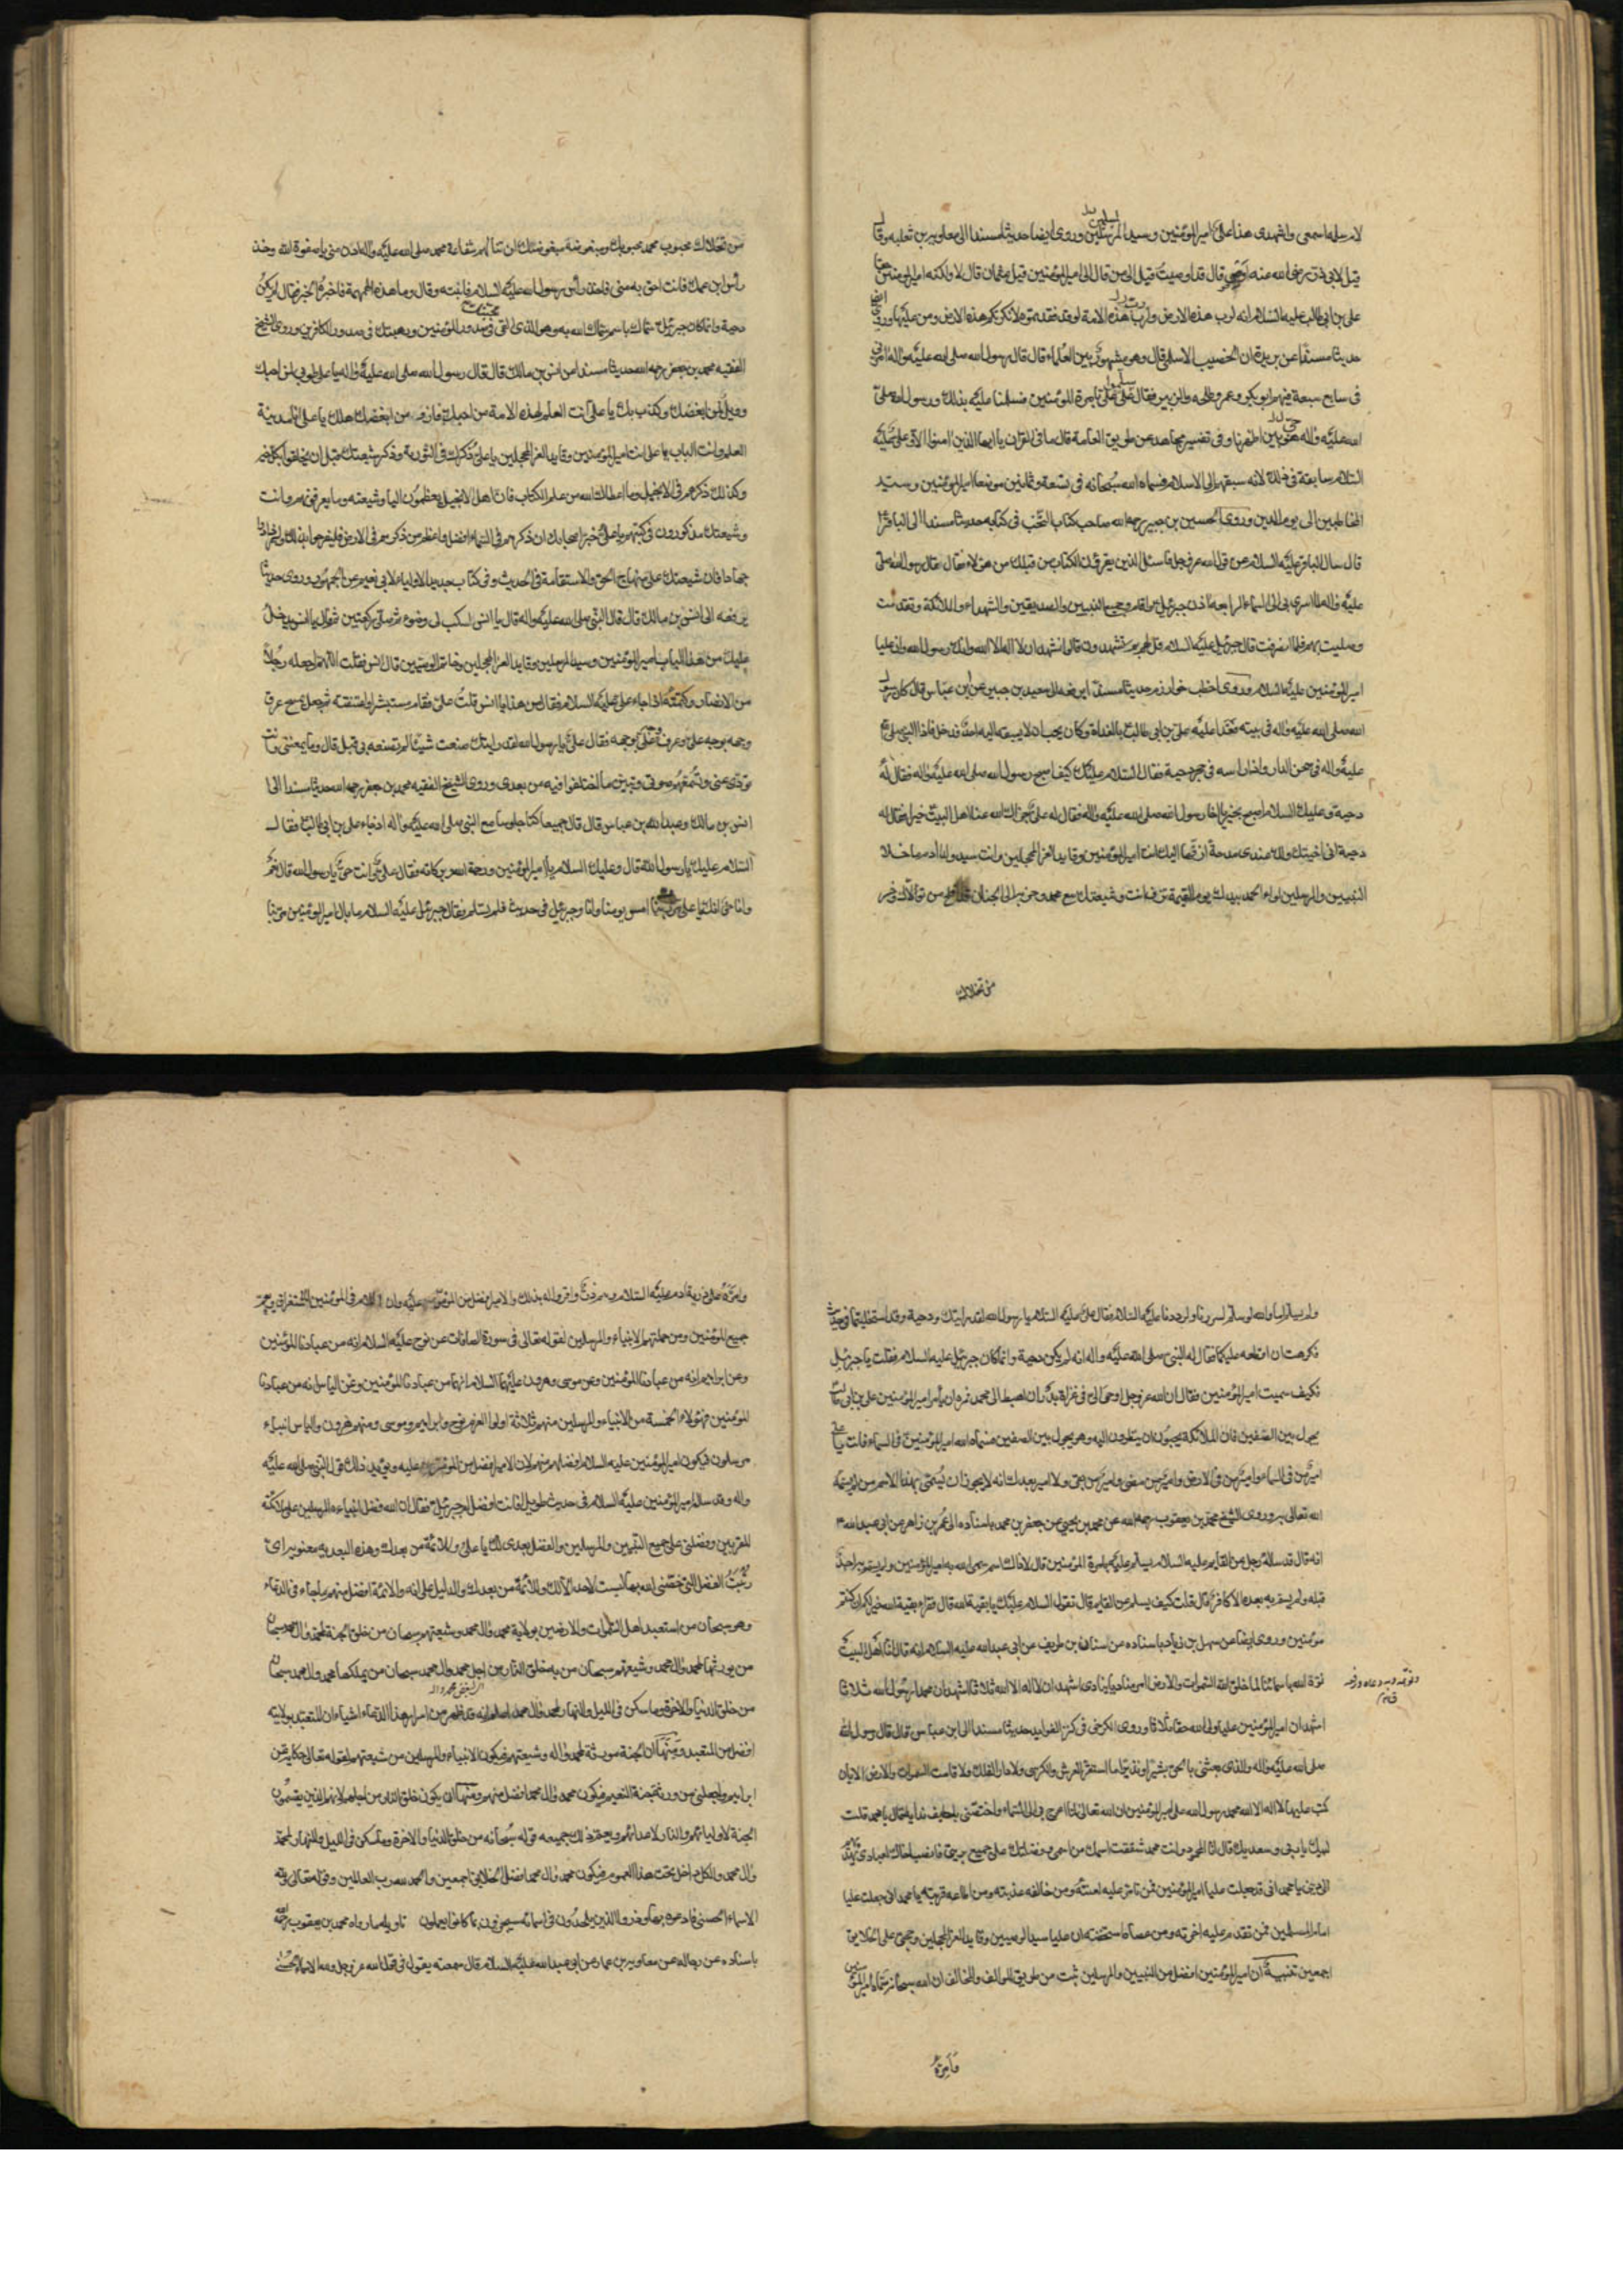 لام سلمة اسمعي واشهدي هذا علي امير المؤمنين وسيد المرسلين وروى ايضا حديثا مسندا الى معاوية بن ثعلبه وقال
قيل لابي ذر رضي الله عنه اوصي قال قد اوصيت قيل الى من قال الى امير المؤمنين قيل عثمان قال لا ولكنه امير المؤمنين حقا
علي بن ابي طالب عليه السلام انه لرب هذه الارض ورب هذه الامة لو قد فقدتموه لانكرتم هذه الارض ومن عليها وروى ايضا
حديثا مسندا عن بريدة بن الخصيب الاسلمي قال وهو مشهور بين العلماء قال قال رسول الله صلى الله عليه واله امرني
في سابع سبعة فيهم ابو بكر وعمر وطلحه والزبير فقال سلموا على علي بامرة المؤمنين فسلمنا عليه بذلك ورسول الله صلى
الله عليه واله حي بين اظهرنا وفي تفسير مجاهد من طريق العامة قال ما في القران يا ايها الذين امنوا الا وعلي عليه
السلام سابقة في ذلك لانه سبقهم الى الاسلام فسماه الله سبحانه في تسعة وثمانين موضعا امير المؤمنين وسيد
المخاطبين الى يوم الدين وروى الحسين بن جبير رحمه الله صاحب كتاب النخب في كتابه حديثا مسندا الى الباقر
قال سال الباقر عليه السلام عن قول الله عز وجل فاسئل الذين يقرؤن الكتاب من قبلك من هؤلاء فقال قال رسول الله صلى
عليه واله لما اسري بي الى السماء الرابعة اذن جبرئيل واقام وجمع النبيين والصديقين والشهداء والملائكة وتقدمت
وصليت بهم فلما انصرفت قال جبرئيل عليه السلام قل لهم بم تشهدون قالوا نشهد ان لا اله الا الله وانك رسول الله وان عليا
امير المؤمنين عليه السلام وروى اخطب خوارزم حديثا مسندا يرفعه الى سعيد بن جبير عن ابن عباس قال كان رسول
الله صلى الله عليه واله في بيته فغدا عليه علي بن ابي طالب بالغداة وكان يحب ان لا يسبقه اليه احد فدخل فاذا النبي صلى
عليه واله في صحن الدار واذا راسه في حجر دحية فقال السلام عليك كيف اصبح رسول الله صلى الله عليه واله فقال له
دحية وعليك السلام اصبح بخير يا اخا رسول الله صلى الله عليه واله فقال له علي جزاك الله عنا اهل البيت خيرا فقال له
دحية اني احبك ولك عندي مدحة ازفها اليك انت امير المؤمنين وقايد الغر المحجلين وانت سيد ولد ادم ما خلا
النبيين والمرسلين لواء الحمد بيدك يوم القيمة تزف انت وشيعتك مع محمد وحزبه الى الجنان قد افلح من تولاك وخسر
من تخلاك
من تخلاك محبوب محمد محبوبك ومبغوضه مبغوضك لن تنالهم شفاعة محمد صلى الله عليه واله ادن مني يا صفوة الله وخذ
رأس ابن عمك فانت احق به مني فاخذ رأس رسول الله عليه السلام فانتبه وقال وما هذه الهمهمة فاخبره الخبر فقال لم يكن
دحية وانما كان جبرئيل سماك باسم سماك الله به وهو الذي القى محبتك في صدور المؤمنين ورهبتك في صدور الكافرين وروى الشيخ
الفقيه محمد بن جعفر رحمه الله حديثا مسندا عن انس بن مالك قال قال رسول الله صلى الله عليه واله يا علي طوبى لمن احبك
وويل لمن ابغضك وكذب بك يا علي انت العلم لهذه الامة من احبك فاز ومن ابغضك هلك يا علي انا مدينة
العلم وانت الباب يا علي انت امير المؤمنين وقايد الغر المحجلين يا علي ذكرك في التورية وذكر شيعتك قبل ان يخلقوا بكل خير
وكذلك ذكرهم في الانجيل وما اعطاك الله من علم الكتاب فان اهل الانجيل يعظمون اليا وشيعته وما يعرفونهم وانت
وشيعتك مذكورون في كتبهم يا علي خبر اصحابك ان ذكرهم في السماء افضل واعظم من ذكرهم في الارض فليفرحوا بذلك وليزدادوا
جهادا فان شيعتك على منهاج الحق والاستقامة في الحديث وفي كتاب حلية الاولياء لابي نعيم عن الجمهور وروى حديثا
يرفعه الى انس بن مالك قال قال النبي صلى الله عليه واله قال يا انس اسكب لي وضوء ثم صلى ركعتين ثم قال يا انس يدخل
عليك من هذا الباب امير المؤمنين وسيد المرسلين وقايد الغر المحجلين وخاتم الوصيين قال انس فقلت اللهم اجعله رجلا
من الانصار وكتمته اذ جاء علي عليه السلام فقال من هذا يا انس قلت علي فقام مستبشرا واعتنقه ثم جعل يمسح عرق
وجهه بوجه علي وعرق علي بوجهه فقال علي يا رسول الله لقد رايتك صنعت شيئا لم تصنعه بي قبل قال وما يمنعني وانت
تؤدي عني وتسمعهم صوتي وتبين ما اختلفوا فيه من بعدي وروى الشيخ الفقيه محمد بن جعفر رحمه الله حديثا مسندا الى
انس بن مالك وعبد الله بن عباس قال قال جميعا كنا جلوسا مع النبي صلى الله عليه واله اذ جاء علي بن ابي طالب فقال
السلام عليك يا رسول الله قال وعليك السلام يا امير المؤمنين ورحمة الله وبركاته فقال علي وانت حي يا رسول الله قال نعم
وانا حي انك يا علي مررت بنا امس يومنا وانا وجبرئيل في حديث فلم تسلم فقال جبرئيل عليه السلام ما بال امير المؤمنين مر بنا
ولم يسلم اما والله لو سلم لسررنا ولرددنا عليه السلام فقال علي عليه السلام يا رسول الله لقد رايتك ودحية وقد استخليتما في حديث
فكرهت ان اقطعه عليكما فقال له النبي صلى الله عليه واله انه لم يكن دحية وانما كان جبرئيل عليه السلام فقلت يا جبرئيل
فكيف سميت امير المؤمنين فقال ان الله عز وجل اوحى الي في غزاة بدر ان اهبط الى محمد فمره ان يأمر امير المؤمنين علي بن ابي طالب
يجول بين الصفين فان الملائكة يحبون ان ينظروا اليه وهو يجول بين الصفين فسماه الله امير المؤمنين في السماء فانت يا علي
امير من في السماء وامير من في الارض وامير من مضى وامير من بقي ولا امير بعدك انه لا يجوز ان يسمى بهذا الاسم من لم يسمه
الله تعالى به وروى الشيخ محمد بن يعقوب رحمه الله عن محمد بن يحيى عن جعفر بن محمد باسناده الى عمر بن زاهر عن ابي عبد الله
انه قال قد ساله رجل عن القايم عليه السلام يسلم عليه بامرة المؤمنين قال لا ذاك اسم سمى الله به امير المؤمنين ولم يسم به احد
قبله ولم يتسم به بعده الا كافر قال قلت كيف يسلم على القايم قال تقول السلام عليك يا بقية الله قال ثم قرأ بقية الله خير لكم ان كنتم
مؤمنين وروى ايضا عن سهل بن زياد باسناده عن سنان بن طريف عن ابي عبد الله عليه السلام انه قال انا اهل البيت
نوه الله باسمائنا لما خلق الله السموات والارض امر مناديا ينادي اشهد ان لا اله الا الله ثلاثا اشهد ان محمدا رسول الله ثلاثا
اشهد ان امير المؤمنين عليا ولي الله حقا ثلاثا وروى الكرخي في كنز الفوايد حديثا مسندا الى ابن عباس قال قال رسول الله
صلى الله عليه واله والذي بعثني بالحق بشيرا ونذيرا ما استقر الكرسي والعرش ولا دار الفلك ولا قامت السموات والارض الا بان
كتب عليها لا اله الا الله محمد رسول الله علي امير المؤمنين ان الله تعالى لما عرج بي الى السماء واختصني بلطيف ندايه قال يا محمد قلت
لبيك يا ربي وسعديك قال انا المحمود وانت محمد شققت اسمك من اسمي وفضلتك على جميع بريتي فانصب اخاك لعبادي
الى ديني يا محمد اني قد جعلت عليا امير المؤمنين فمن تامر عليه لعنته ومن خالفه عذبته ومن اطاعه قربته يا محمد اني جعلت عليا
امام المسلمين فمن تقدم عليه اخزيته ومن عصاه استخفيته ان عليا سيد الوصيين وقايد الغر المحجلين وحجتي على الخلايق
اجمعين تنبيه ان امير المؤمنين افضل من النبيين والمرسلين ثبت من طريق المؤالف والمخالف ان الله سبحانه سماه امير المؤمنين
وأمره
وامره على ذرية ادم عليه السلام وهم ذر واقروا له بذلك والامير افضل من المؤمر عليه وان اللام في المؤمنين للاستغراق فيعم
جميع المؤمنين ومن جملتهم الانبياء والمرسلين لقوله تعالى في سورة الصافات عن نوح عليه السلام انه من عبادنا المؤمنين
وعن ابراهيم انه من عبادنا المؤمنين وعن موسى وهرون عليهما السلام انهما من عبادنا المؤمنين وعن الياس انه من عبادنا
المؤمنين فهؤلاء الخمسة من الانبياء والمرسلين منهم ثلاثة اولوا العزم نوح وابراهيم وموسى ومنهم هرون والياس انبياء
مرسلون فيكون امير المؤمنين عليه السلام افضل منهم لان الامير افضل من المؤمر عليه ويؤيد ذلك قول النبي صلى الله عليه
واله وقد ساله امير المؤمنين عليه السلام في حديث طويل افانت افضل ام جبرئيل فقال ان الله فضل انبياءه المرسلين على ملائكته
المقربين وفضلني على جميع النبيين والمرسلين والفضل بعدي لك يا علي وللائمة من بعدك وهذه البعدية معنوية اي
رتبة الفضل التي خصني الله بها ليست لاحد الا لك وللائمة من بعدك والدليل على انه والائمة افضل منهم ما جاء في الدعاء
وهو سبحان من استعبد اهل السموات والارضين بولاية محمد وال محمد وشيعتهم سبحان من خلق الجنة لمحمد وال محمد سبحان
من يورثها محمد وال محمد وشيعتهم سبحان من خلق النار من اجل محمد وال محمد سبحان من يملكها محمد وال محمد سبحان
من خلق الدنيا والاخرة وما سكن في الليل والنهار لمحمد وال محمد فقد ظهر من اسرار هذا الدعاء اشياء ان المتعبد بولايته
افضل من المتعبد ومنها ان الجنة مورثة لمحمد واله وشيعتهم فيكون الانبياء والمرسلين من شيعتهم لقوله تعالى حكاية عن
ابراهيم واجعلني من ورثة جنة النعيم فيكون محمد وال محمد افضل منهم ومنها ان يكون خلق النار من اجلهم لانهم الذين يقسمون
الجنة لاوليائهم والنار لاعدائهم ويعم ذلك جميعه قوله سبحانه من خلق الدنيا والاخرة وما سكن في الليل والنهار لمحمد
وال محمد والكل داخل تحت هذا العموم فيكون محمد وال محمد افضل الخلايق اجمعين والحمد لله رب العالمين وقوله تعالى ولله
الاسماء الحسنى فادعوه بها وذروا الذين يلحدون في اسمائه سيجزون ما كانوا يعملون تاويله ما رواه محمد بن يعقوب رحمه الله
باسناده عن رجاله عن معاوية بن عمار عن ابي عبد الله عليه السلام قال سمعته يقول في قول الله عز وجل ولله الاسماء الحسنى